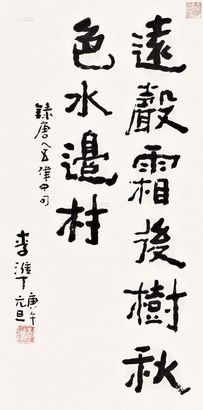 遠聲霜後樹秋
色水邊村
錄唐人五律中句
李㴋丁
庚午
元旦